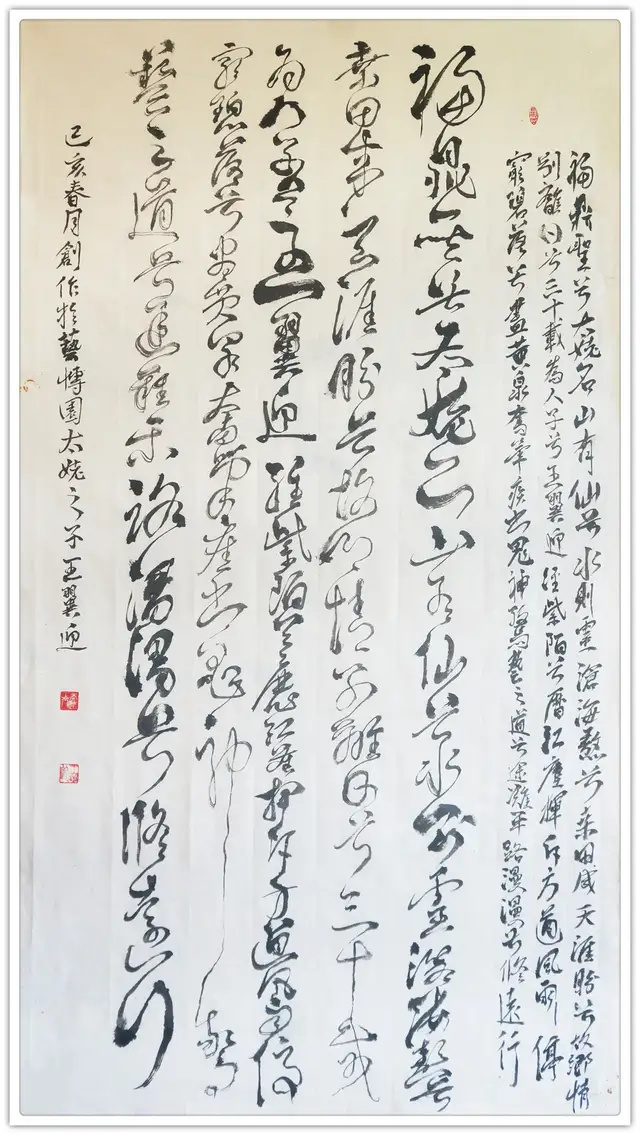 福鼎聖兮太姥名山有仙兮水則靈滄海兮桑田成天涯盼兮故鄉情
別離日兮三十載為人子兮王翼迎徑紫陌兮曆紅塵揮斥方遒風雨停
窮碧落兮盡黃泉奮筆疾書鬼神驚藝之道兮途難平路漫漫兮修遠行
福鼎聖兮太姥名山有仙兮水則靈滄海兮
桑田成天涯盼兮故鄉情別離日兮三十載
為人子兮王翼迎徑紫陌兮曆紅塵揮斥方遒風雨停
窮碧落兮盡黃泉奮筆疾書鬼神驚
藝之道兮途難平路漫漫兮修遠行
己亥春月創作於藝博園太姥之子王翼迎